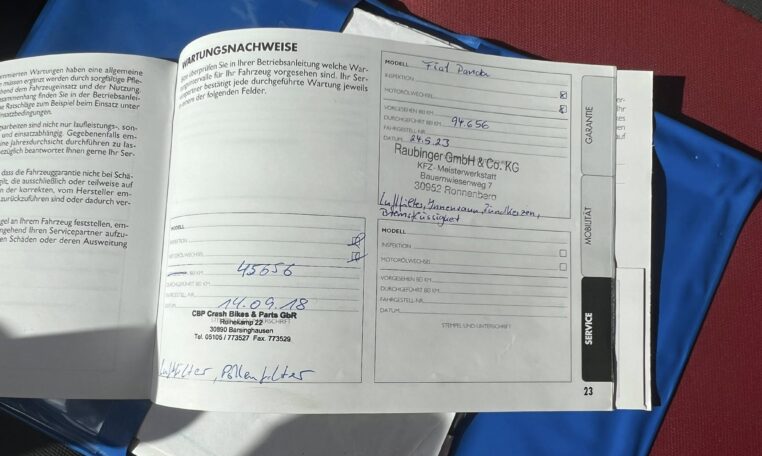 mmierten Wartungen haben eine allgemeine
müssen ergänzt werden durch sorgfältige Pfle-
hend dem Fahrzeugeinsatz und der Nutzung.
sammenhang finden Sie in der Betriebsanlei-
he Ratschläge zum Beispiel beim Einsatz unter
insatzbedingungen.
sarbeiten sind nicht nur laufleistungs-, son-
und einsatzabhängig. Gegebenenfalls em-
ine Jahresdurchsicht durchführen zu las-
ezüglich beantwortet Ihnen gerne Ihr Ser-
dass die Fahrzeuggarantie nicht bei Schä-
gilt, die ausschließlich oder teilweise auf
n der korrekten, vom Hersteller em-
zurückzuführen sind oder dadurch ver-
gel an Ihrem Fahrzeug feststellen, ern-
ngehend Ihren Servicepartner aufzu-
en Schäden oder deren Ausweitung
WARTUNGSNACHWEISE
überprüfen Sie in Ihrer Betriebsanleitung welche War-
intervalle für Ihr Fahrzeug vorgesehen sind. Ihr Ser-
partner bestätigt jede durchgeführte Wartung jeweils
in einem der folgenden Felder.
MODELL
INSPEKTION
MOTORÖLWECHSEL
BEI KM 45656
DURCHGEFÜHRT BEI KM
FAHRGESTELL-NR.
DATUM 14.09.18
CBP Crash Bikes & Parts GbR
Rohekamp 22
30890 Barsinghausen
Tel. 05105 / 773527 Fax. 773529
Luftfilter, Pollenfilter
MODELL Fiat Panda
INSPEKTION
MOTORÖLWECHSEL
VORGESEHEN BEI KM
DURCHGEFÜHRT BEI KM 94656
FAHRGESTELL-NR.
DATUM 24.5.23
Raubinger GmbH & Co. KG
KFZ - Meisterwerkstatt
Bauernwiesenweg 7
30952 Ronnenberg
Luftfilter, Innenraum, Zündkerzen,
Bremsflüssigkeit
MODELL
INSPEKTION
MOTORÖLWECHSEL
VORGESEHEN BEI KM
DURCHGEFÜHRT BEI KM
FAHRGESTELL-NR.
DATUM
STEMPEL UND UNTERSCHRIFT
GARANTIE
MOBILITÄT
SERVICE
23